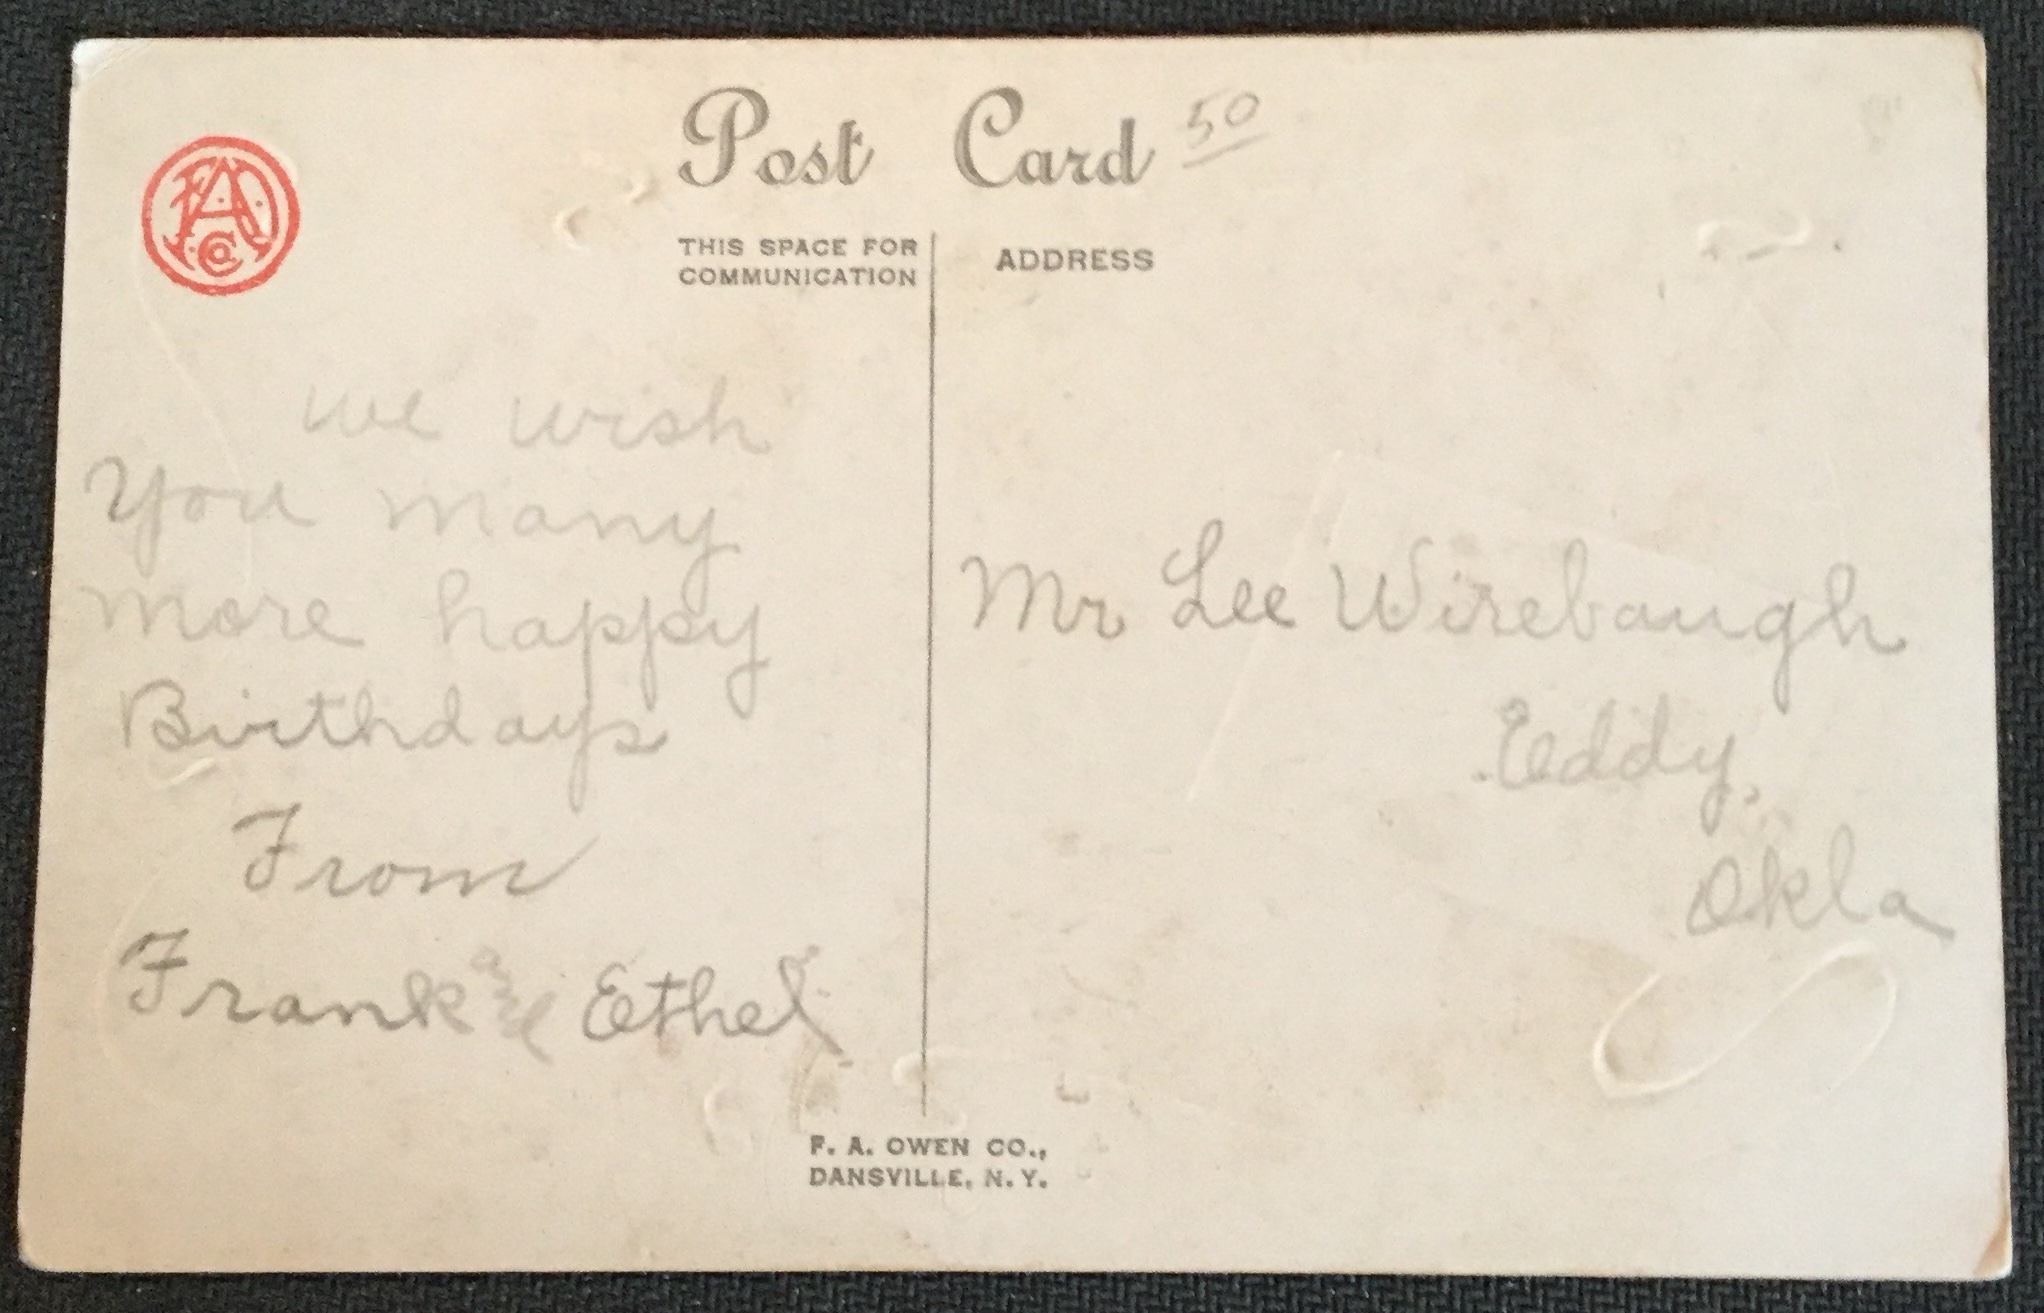 Post Card 50
THIS SPACE FOR
COMMUNICATION
ADDRESS
FAO
Co
we wish
You many
more happy
Birthdays
From
Frank and Ethel
Mr Lee Wirebaugh
Eddy,
Okla
F. A. OWEN CO.,
DANSVILLE, N. Y.